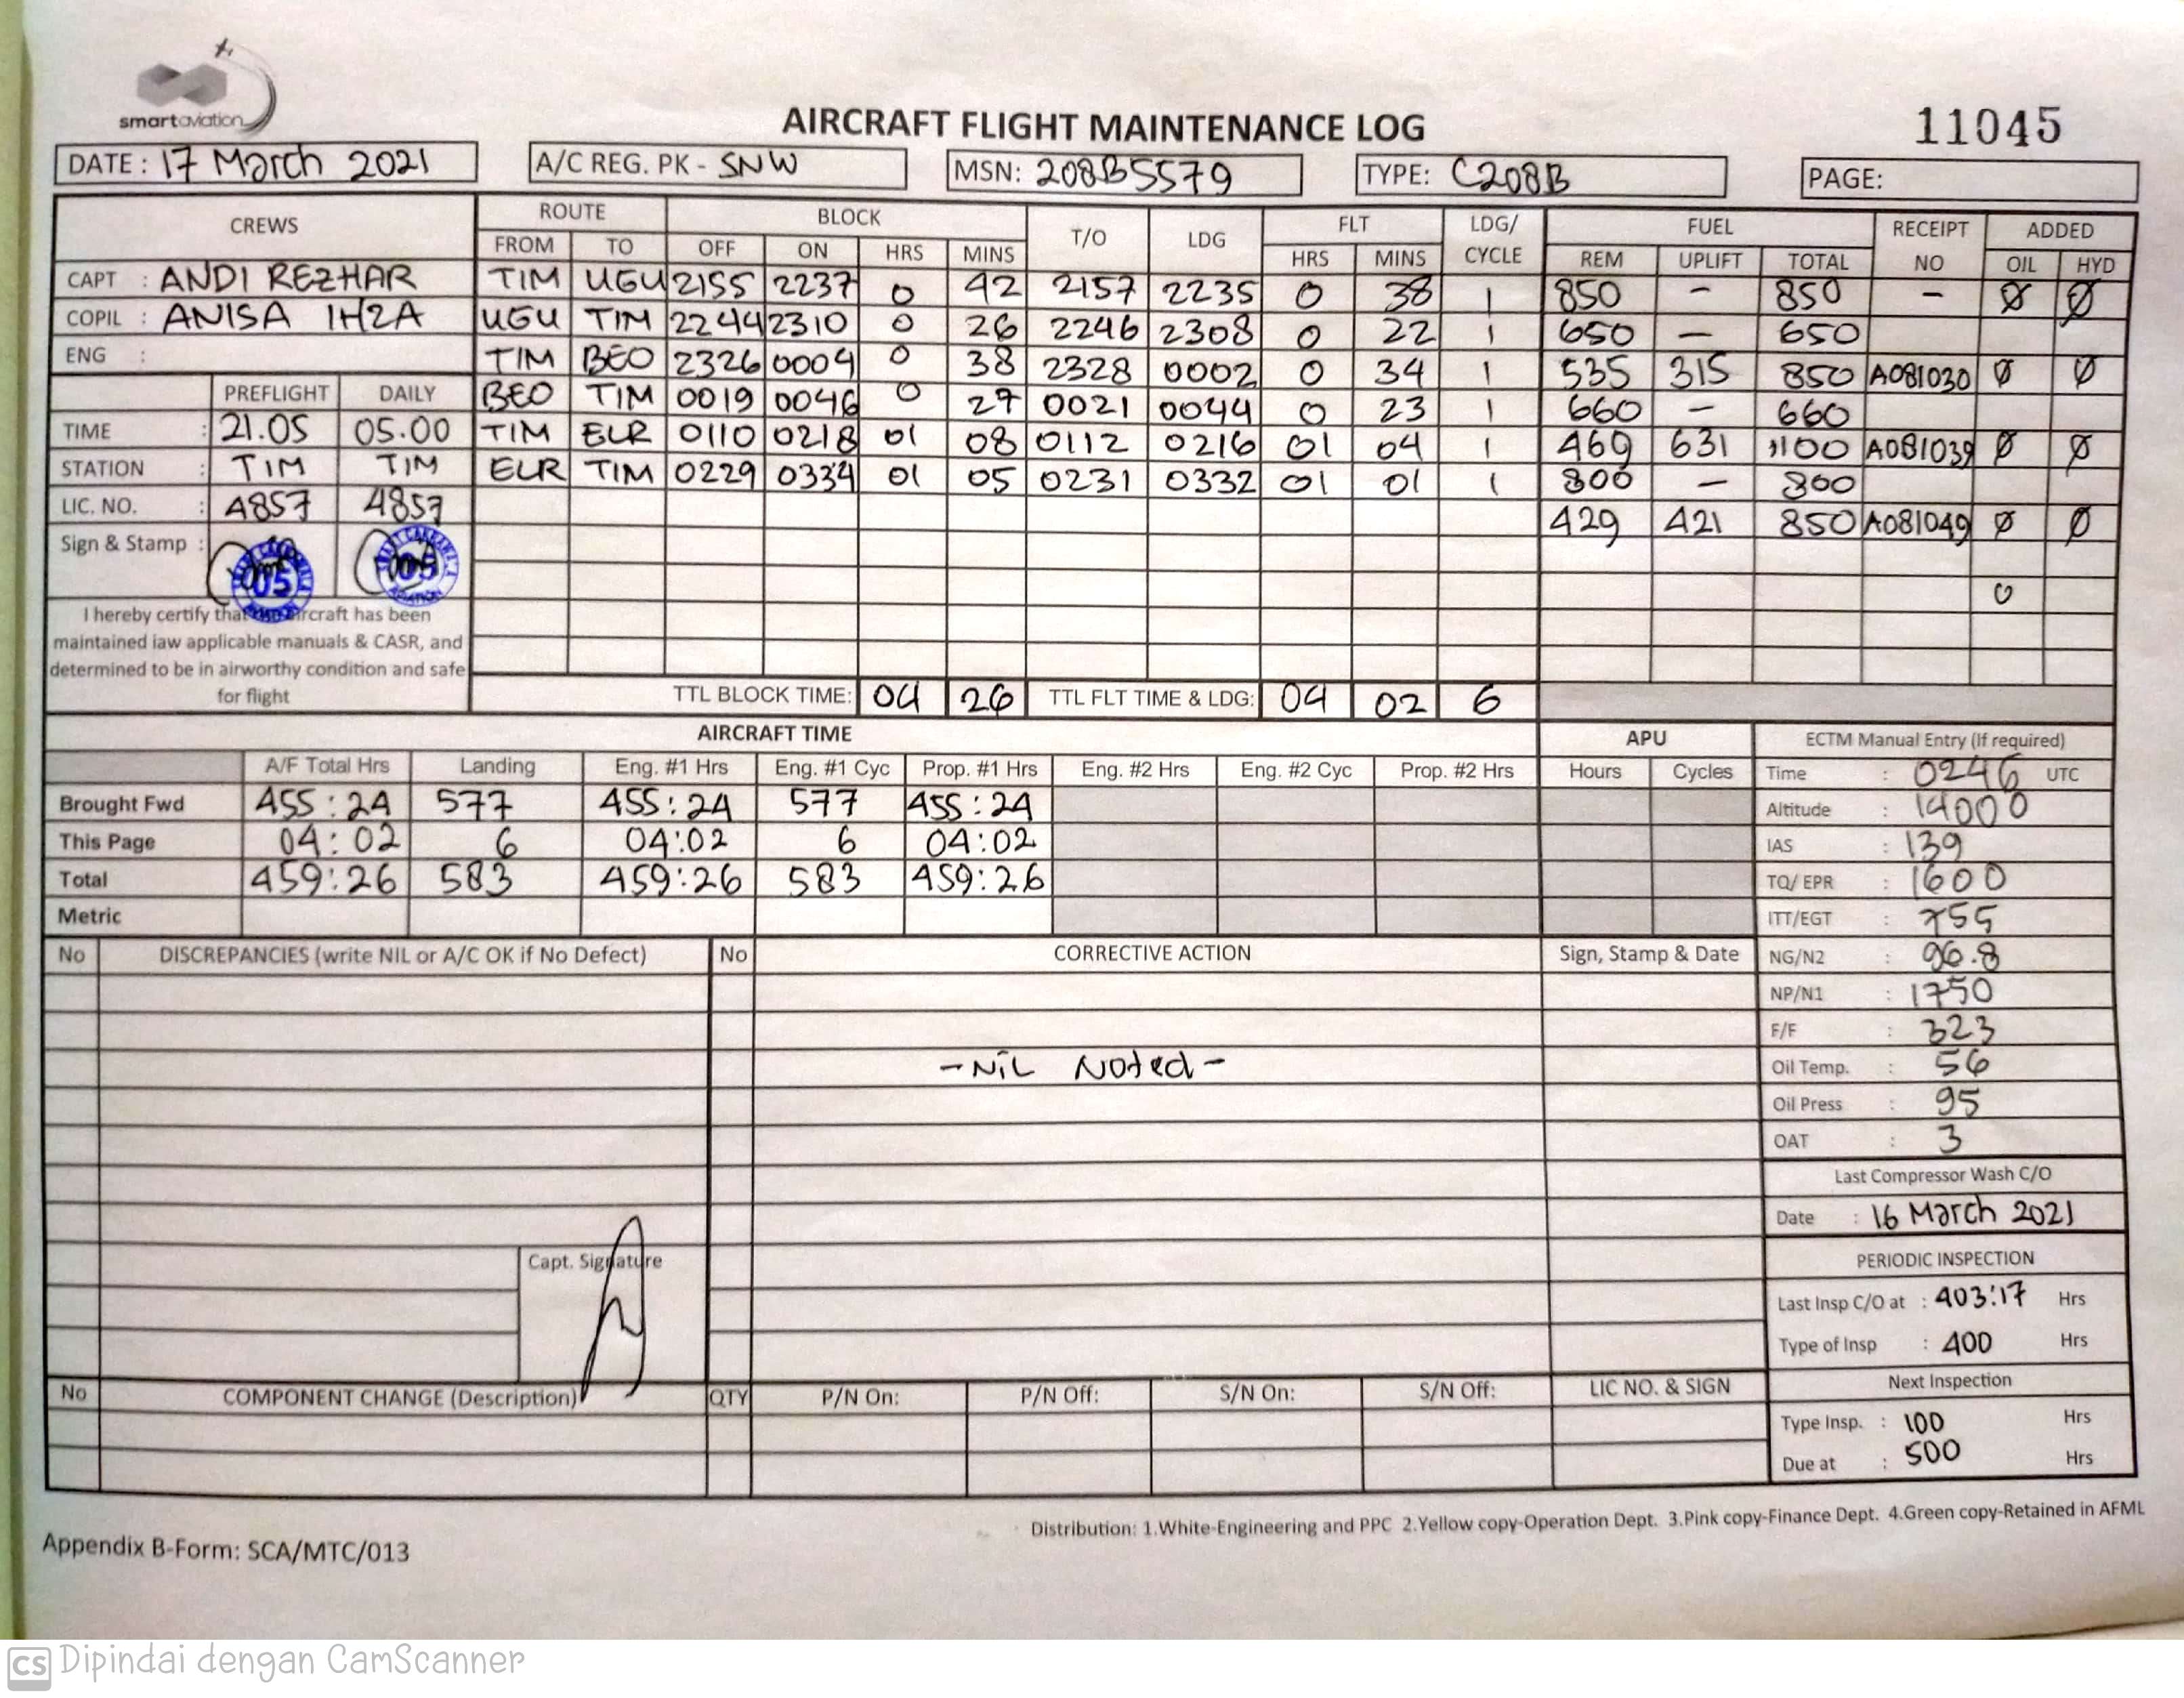 smartaviation
AIRCRAFT FLIGHT MAINTENANCE LOG
11045
DATE : 17 March 2021 A/C REG. PK - SNW MSN: 208B5579 TYPE: C208B PAGE:
CREWS ROUTE BLOCK T/O LDG FLT LDG/ CYCLE FUEL RECEIPT NO ADDED
FROM TO OFF ON HRS MINS HRS MINS REM UPLIFT TOTAL OIL HYD
CAPT : ANDI REZHAR TIM UGU 2155 2237 0 42 2157 2235 0 38 1 850 - 850 - Ø Ø
COPIL : ANISA IHZA UGU TIM 2244 2310 0 26 2246 2308 0 22 1 650 - 650
ENG : TIM BEO 2326 0004 0 38 2328 0002 0 34 1 535 315 850 A081030 Ø Ø
PREFLIGHT DAILY BEO TIM 0019 0046 0 27 0021 0044 0 23 1 660 - 660
TIME : 21.05 05.00 TIM ELR 0110 0218 01 08 0112 0216 01 04 1 469 631 1100 A081039 Ø Ø
STATION : TIM TIM ELR TIM 0229 0334 01 05 0231 0332 01 01 1 800 - 800
LIC. NO. : 4857 4857 429 421 850 A081049 Ø Ø
Sign & Stamp : 05 05
0
I hereby certify that the aircraft has been
maintained iaw applicable manuals & CASR, and
determined to be in airworthy condition and safe
for flight
TTL BLOCK TIME: 04 26 TTL FLT TIME & LDG: 04 02 6
AIRCRAFT TIME APU ECTM Manual Entry (If required)
A/F Total Hrs Landing Eng. #1 Hrs Eng. #1 Cyc Prop. #1 Hrs Eng. #2 Hrs Eng. #2 Cyc Prop. #2 Hrs Hours Cycles Time : 0246 UTC
Brought Fwd 455:24 577 455:24 577 455:24 Altitude : 14000
This Page 04:02 6 04:02 6 04:02 IAS : 139
Total 459:26 583 459:26 583 459:26 TQ/ EPR : 1600
Metric ITT/EGT : 755
No DISCREPANCIES (write NIL or A/C OK if No Defect) No CORRECTIVE ACTION Sign, Stamp & Date NG/N2 : 96.8
NP/N1 : 1750
F/F : 323
- NiL Noted - Oil Temp. : 56
Oil Press : 95
OAT : 3
Last Compressor Wash C/O
Date : 16 March 2021
Capt. Signature PERIODIC INSPECTION
Last Insp C/O at : 403:17 Hrs
Type of Insp : 400 Hrs
No COMPONENT CHANGE (Description) QTY P/N On: P/N Off: S/N On: S/N Off: LIC NO. & SIGN Next Inspection
Type Insp. : 100 Hrs
Due at : 500 Hrs
Distribution: 1.White-Engineering and PPC 2.Yellow copy-Operation Dept. 3.Pink copy-Finance Dept. 4.Green copy-Retained in AFML
Appendix B-Form: SCA/MTC/013
CS Dipindai dengan CamScanner